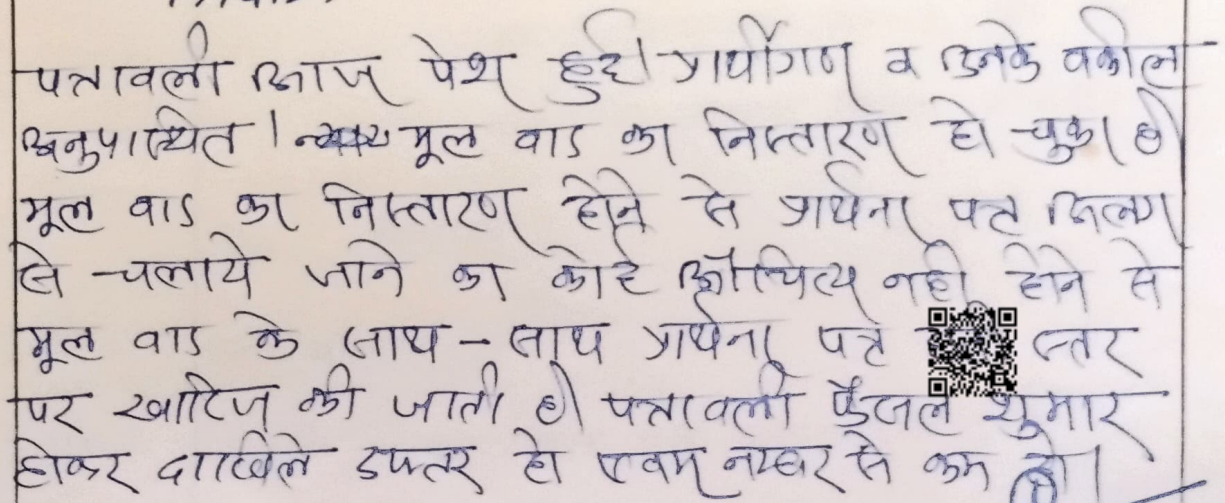 पत्रावली आज पेश हुई। प्रार्थीगण व उनके वकील
अनुपास्थित। मूल वाद का निस्तारण हो चुका है।
मूल वाद का निस्तारण होने से प्रार्थना पत्र अलग
से चलाये जाने का कोई औचित्य नहीं होने से
मूल वाद के साथ - साथ प्रार्थना पत्र स्तर
पर खारिज की जाती है। पत्रावली फैजल शुमार
होकर दाखिले दफ्तर हो एवम नम्बर से कम हो।